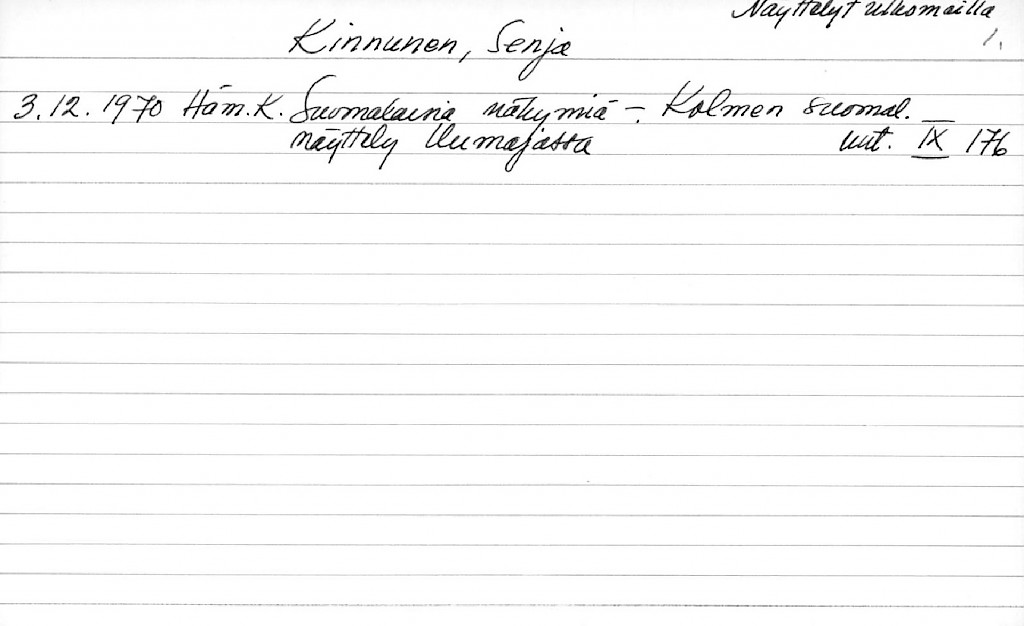 Näyttelyt ulkomailla
1.
Kinnunen, Senja
3.12.1970 Häm.K. Suomalaisia näkymiä - Kolmen suomal.
näyttely Uumajassa uut. IX 176